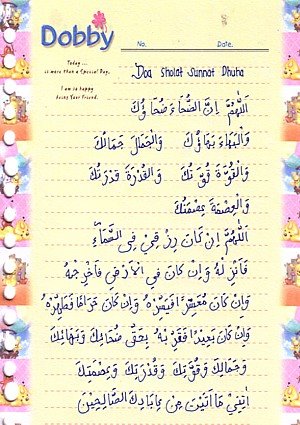 Dobby
No. Date.
Today ...
is more than a Special Day.
I am so happy
being Your Friend.
Doa Sholat Sunnat Dhuha
اَللّٰهُمَّ اِنَّ الضُّحَاءَ ضُحَاؤُكَ
وَالْبَهَاءَ بَهَاؤُكَ وَالْجَمَالَ جَمَالُكَ
وَالْقُوَّةَ قُوَّتُكَ وَالْقُدْرَةَ قُدْرَتُكَ
وَالْعِصْمَةَ عِصْمَتُكَ
اَللّٰهُمَّ اِنْ كَانَ رِزْقِيْ فِى السَّمَاءِ
فَاَنْزِلْهُ وَاِنْ كَانَ فِي الْاَرْضِ فَاَخْرِجْهُ
وَاِنْ كَانَ مُعَسِّرًا فَيَسِّرْهُ وَاِنْ كَانَ حَرَامًا فَطَهِّرْهُ
وَاِنْ كَانَ بَعِيْدًا فَقَرِّبْهُ بِحَقِّ ضُحَائِكَ وَبَهَائِكَ
وَجَمَالِكَ وَقُوَّتِكَ وَقُدْرَتِكَ وَعِصْمَتِكَ
اٰتِنِيْ مَا اَتَيْتَ مِنْ عِبَادِكَ الصَّالِحِيْنَ